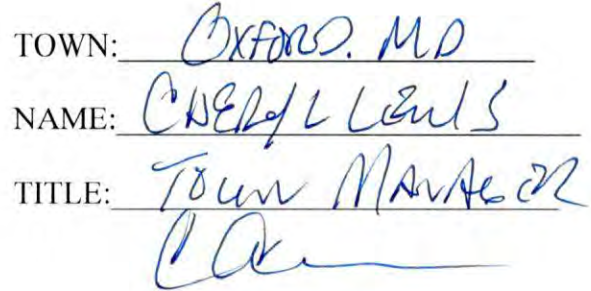 TOWN: OXFORD. MD
NAME: CHERYL LEWIS
TITLE: TOWN MANAGER